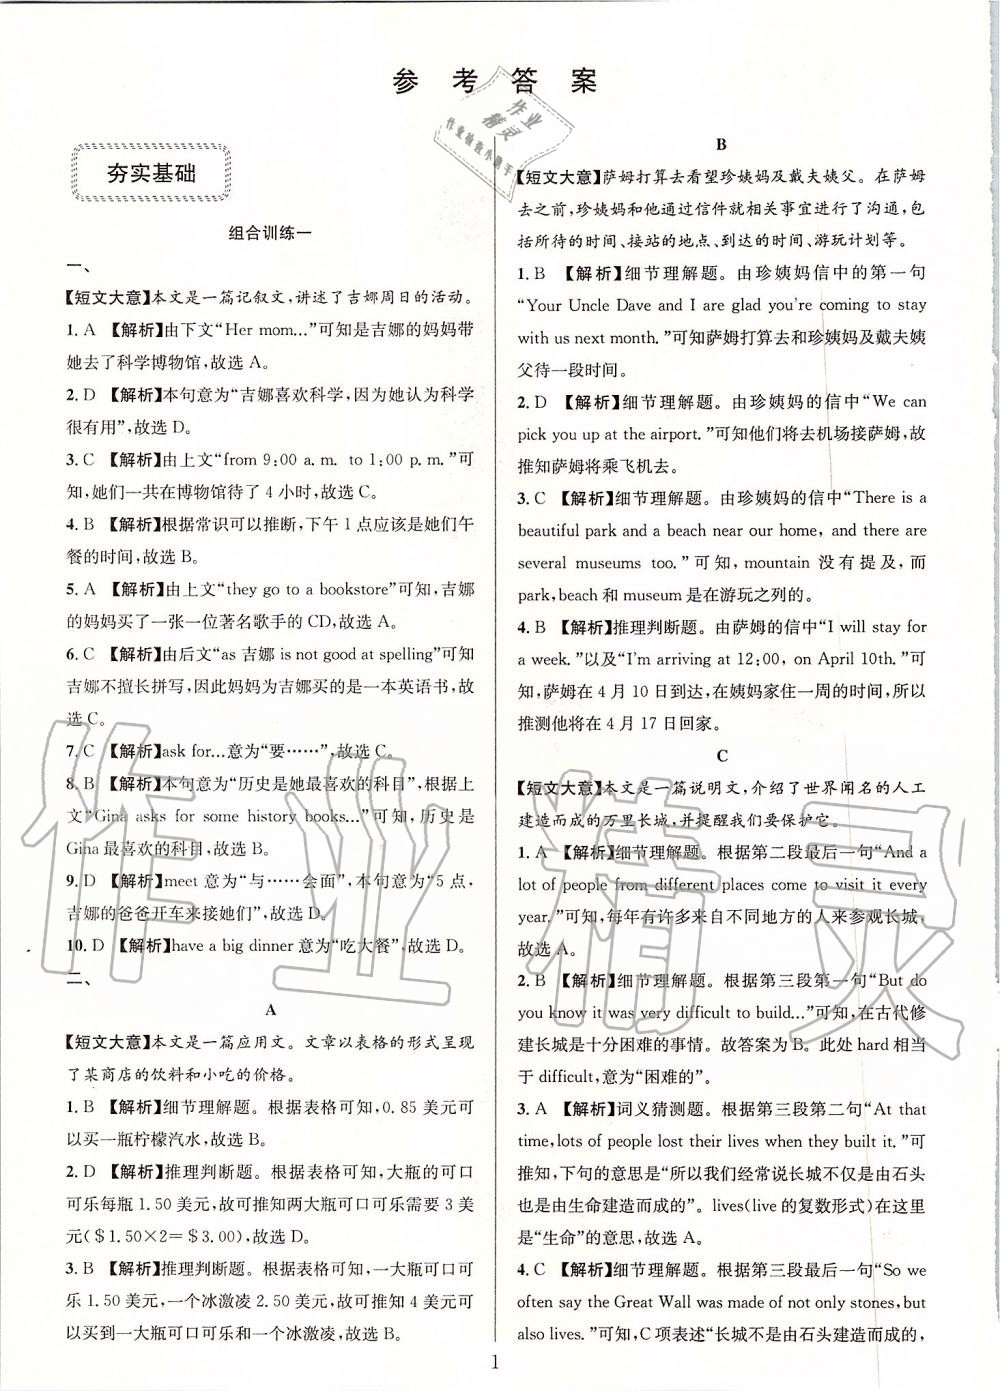 参考答案
夯实基础
组合训练一
一、
【短文大意】本文是一篇记叙文,讲述了吉娜周日的活动。
1. A 【解析】由下文“Her mom...”可知是吉娜的妈妈带
她去了科学博物馆,故选 A。
2. D 【解析】本句意为“吉娜喜欢科学,因为她认为科学
很有用”,故选 D。
3. C 【解析】由上文“from 9:00 a. m. to 1:00 p. m.”可
知,她们一共在博物馆待了 4 小时,故选 C。
4. B 【解析】根据常识可以推断,下午 1 点应该是她们午
餐的时间,故选 B。
5. A 【解析】由上文“they go to a bookstore”可知,吉娜
的妈妈买了一张一位著名歌手的 CD,故选 A。
6. C 【解析】由后文“as 吉娜 is not good at spelling”可知
吉娜不擅长拼写,因此妈妈为吉娜买的是一本英语书,故
选 C。
7. C 【解析】ask for...意为“要……”,故选 C。
8. B 【解析】本句意为“历史是她最喜欢的科目”,根据上
文“Gina asks for some history books...”可知,历史是
Gina 最喜欢的科目,故选 B。
9. D 【解析】meet 意为“与……会面”,本句意为“5 点,
吉娜的爸爸开车来接她们”,故选 D。
10. D 【解析】have a big dinner 意为“吃大餐”,故选 D。
二、
A
【短文大意】本文是一篇应用文。文章以表格的形式呈现
了某商店的饮料和小吃的价格。
1. B 【解析】细节理解题。根据表格可知,0. 85 美元可
以买一瓶柠檬汽水,故选 B。
2. D 【解析】推理判断题。根据表格可知,大瓶的可口
可乐每瓶 1. 50 美元,故可推知两大瓶可口可乐需要 3 美
元($ 1. 50×2=$ 3. 00),故选 D。
3. B 【解析】推理判断题。根据表格可知,一大瓶可口可
乐 1. 50 美元,一个冰激凌 2. 50 美元,故可推知 4 美元可
以买到一大瓶可口可乐和一个冰激凌,故选 B。
B
【短文大意】萨姆打算去看望珍姨妈及戴夫姨父。在萨姆
去之前,珍姨妈和他通过信件就相关事宜进行了沟通,包
括所待的时间、接站的地点、到达的时间、游玩计划等。
1. B 【解析】细节理解题。由珍姨妈信中的第一句
“Your Uncle Dave and I are glad you're coming to stay
with us next month. ”可知萨姆打算去和珍姨妈及戴夫姨
父待一段时间。
2. D 【解析】细节理解题。由珍姨妈的信中“We can
pick you up at the airport. ”可知他们将去机场接萨姆,故
推知萨姆将乘飞机去。
3. C 【解析】细节理解题。由珍姨妈的信中“There is a
beautiful park and a beach near our home, and there are
several museums too. ”可知, mountain 没有提及,而
park, beach 和 museum 是在游玩之列的。
4. B 【解析】推理判断题。由萨姆的信中“I will stay for
a week. ”以及“I'm arriving at 12:00, on April 10th. ”可
知,萨姆在 4 月 10 日到达,在姨妈家住一周的时间,所以
推测他将在 4 月 17 日回家。
C
【短文大意】本文是一篇说明文,介绍了世界闻名的人工
建造而成的万里长城,并提醒我们要保护它。
1. A 【解析】细节理解题。根据第二段最后一句“And a
lot of people from different places come to visit it every
year. ”可知,每年有许多来自不同地方的人来参观长城,
故选 A。
2. B 【解析】细节理解题。根据第三段第一句“But do
you know it was very difficult to build...”可知,在古代修
建长城是十分困难的事情。故答案为 B。此处 hard 相当
于 difficult,意为“困难的”。
3. A 【解析】词义猜测题。根据第三段第二句“At that
time, lots of people lost their lives when they built it. ”可
推知,下句的意思是“所以我们经常说长城不仅是由石头
也是由生命建造而成的”。lives(live 的复数形式)在这里
是“生命”的意思,故选 A。
4. C 【解析】细节理解题。根据第三段最后一句“So we
often say the Great Wall was made of not only stones, but
also lives. ”可知,C 项表述“长城不是由石头建造而成的,
1
作业精灵
作业精灵
作业检查小助手